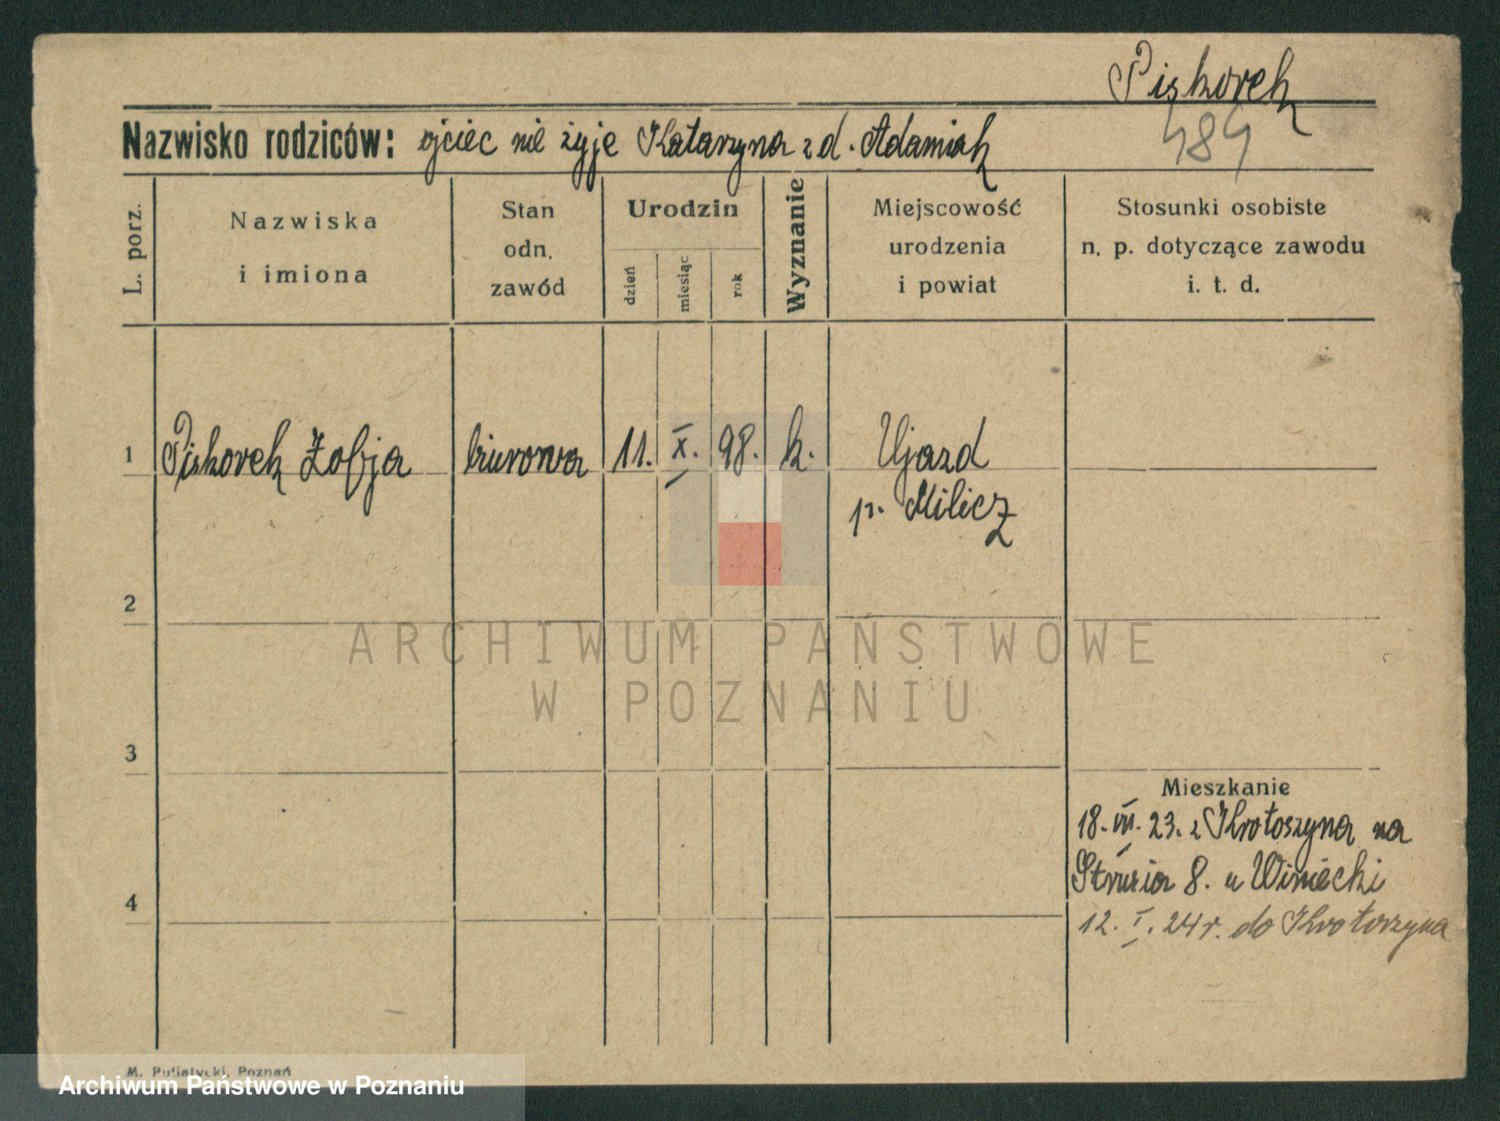 Piskorek
484
Nazwisko rodziców: ojciec nie żyje Katarzyna z d. Adamiak
L. porz.
Nazwiska
i imiona
Stan
odn.
zawód
Urodzin
dzień
miesiąc
rok
Wyznanie
Miejscowość
urodzenia
i powiat
Stosunki osobiste
n. p. dotyczące zawodu
i. t. d.
1 Piskorek Zofja biurowa 11. X. 98. k. Ujazd
p. Milicz
2
ARCHIWUM PAŃSTWOWE
W POZNANIU
3
Mieszkanie
18. VII. 23. z Krotoszyna na
8. u Winiecki
4
12. I. 24 r. do Krotoszyna
M. Putiatycki, Poznań
Archiwum Państwowe w Poznaniu